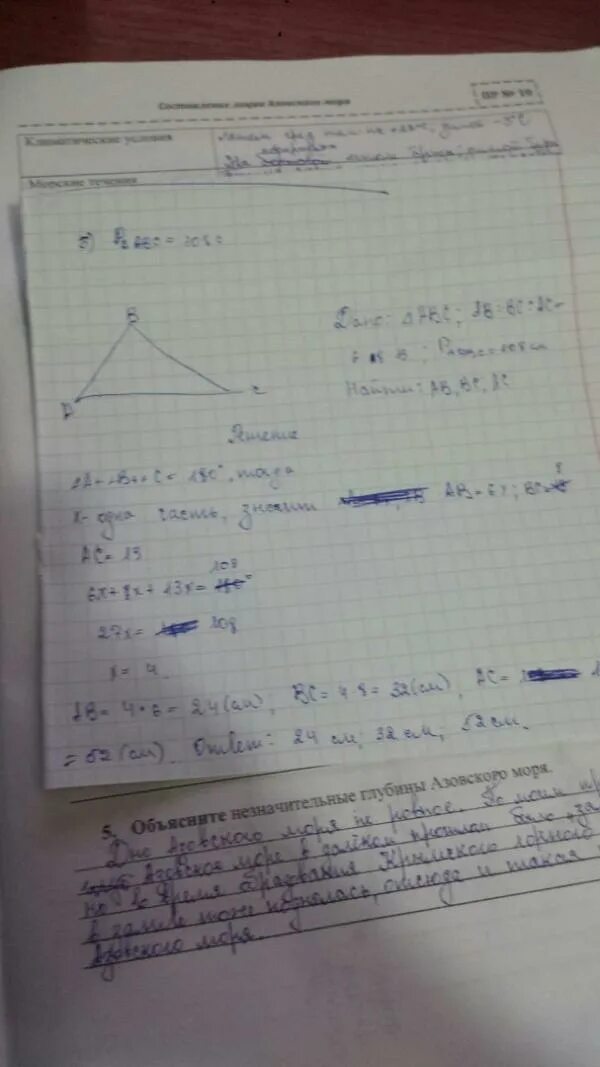 ПР № 10
Составление лоции Азовского моря
Климатические условия
Морские течения
5) P△ABC = 108
B
Дано: △ABC; AB:BC:AC=
Найти: AB, BC, AC
C
Решение
∠A+∠B+∠C = 180°, тогда
x - одна часть, значит AB = 6x; BC= 8
AC = 13
6x+8x+13x= 108
27x= 108
x = 4
AB = 4·6 = 24 (см); BC = 4·8 = 32 (см), AC =
= 52 (см). Ответ: 24 см; 32 см; 52 см.
5. Объясните незначительные глубины Азовского моря.
Дно Азовского моря не ровное. По моим
Азовское море в далёком прошлом было
но во время образования Крымского горного
в земле тоже поднялась, отсюда и такая
Азовского моря.